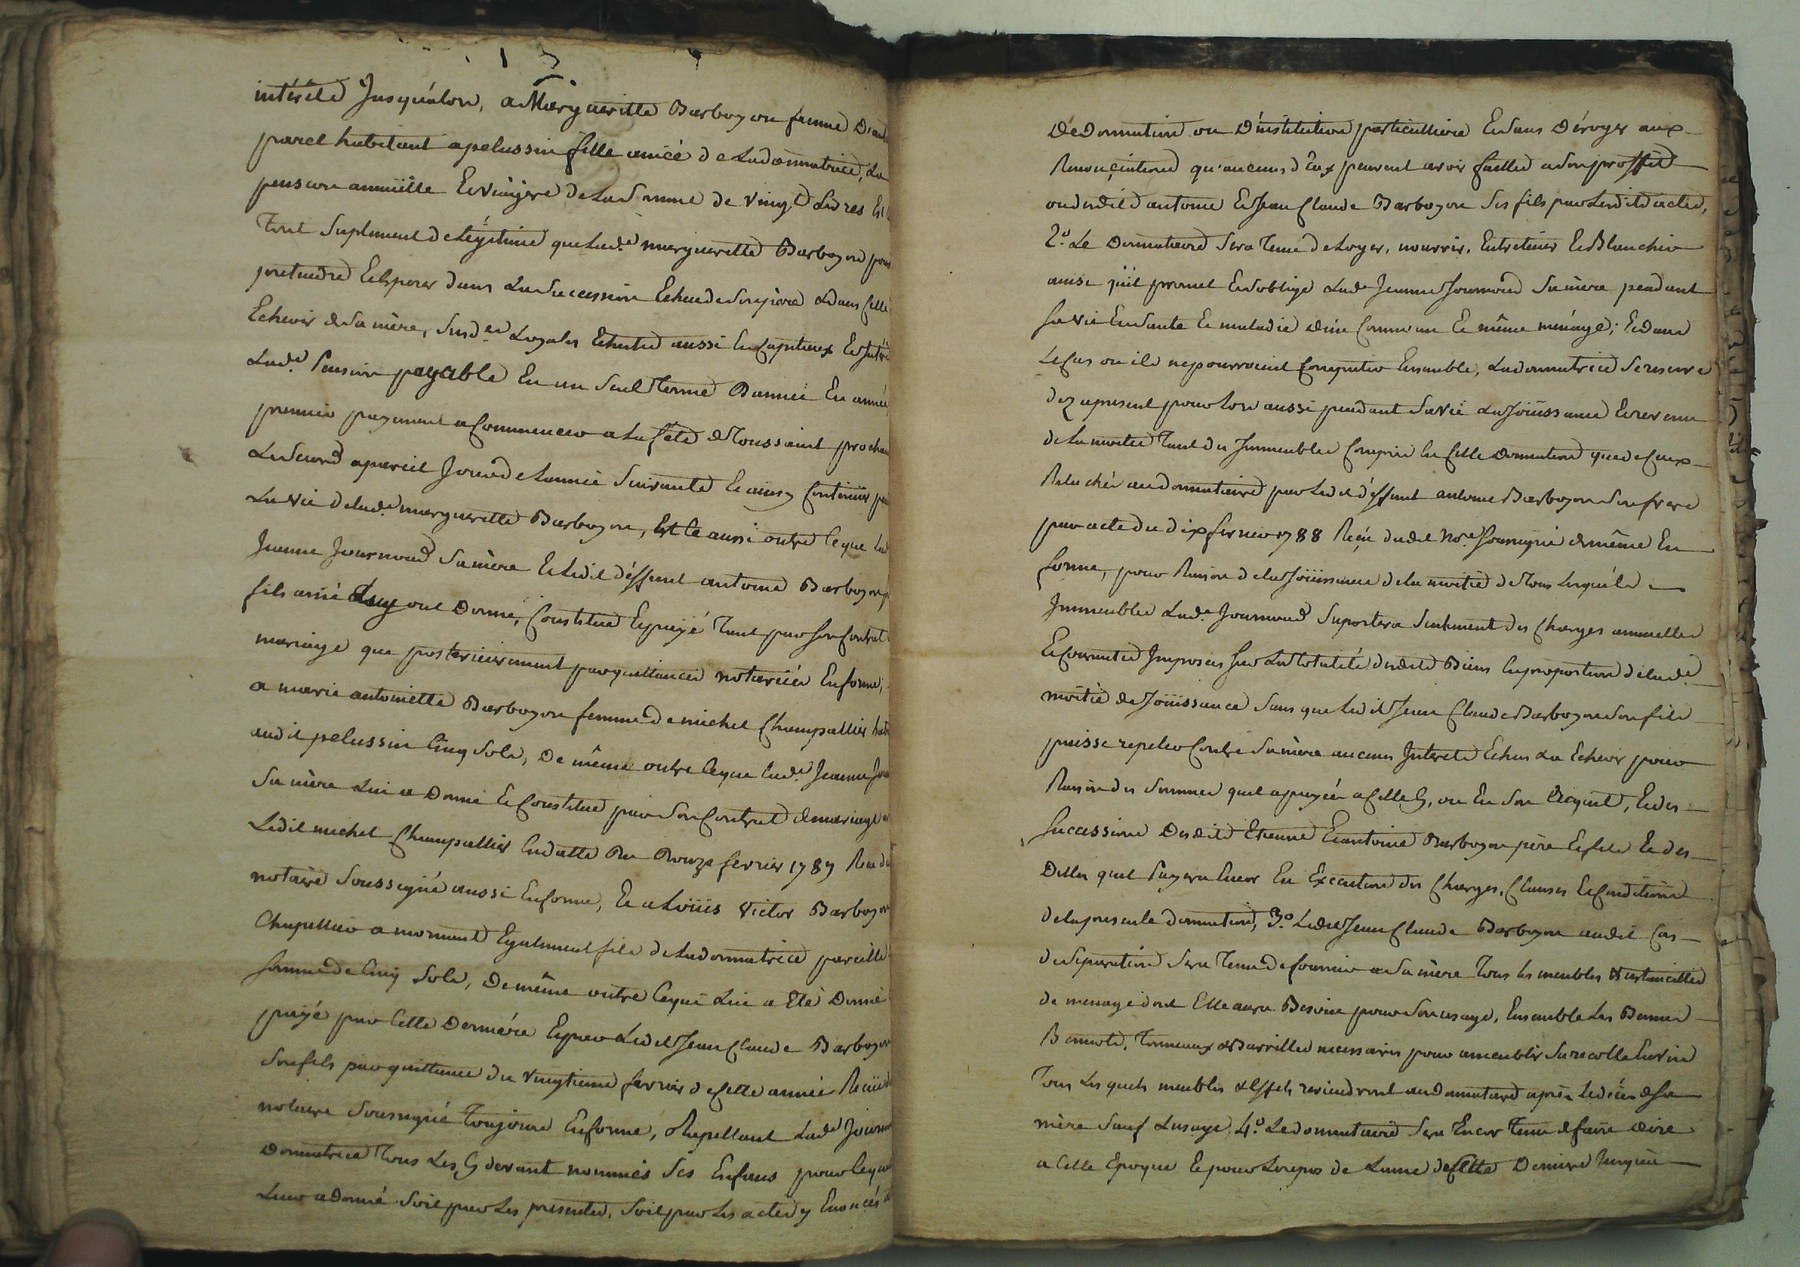 intérêts Jusqu'alors, a Margueritte Barboyon femme D'
parel habitant a pelussin fille ainée de Ladonnatrice, La
pension annuëlle Et viagere de La Somme de vingt Livres Et
Tout Suplement de Légitime que Lad.e marguerette Barboyon
pretendre Et Esperer dans La Succession Echüe de Son père Et dans Celle
Echeoir de Sa mère, Susd.e Legales Echutes aussi En Capitaux Et Interê
Lad.e Pension payable En un Seul Terme D'année En année
premier payement a Commencer a La fête de Toussaint prochai
Le Second a pareil Jour de L'année Suivante Et ainsy Continuer
La vie de Lad.e marguerette Barboyon, Et Ce aussi outre Ceque
Jeanne Journoud Sa mère Et Ledit déffunt antoine Barboyon
fils ainé Luy ont Donné, Constitué Et payé Tant par Son Contrat
mariage que posterieurement par quittances notariées En forme,
a marie antoinette Barboyon femme De michel Champallier
audit pelussin Cinq Sols, De même outre Ceque Lad.e Jeanne
Sa mère Lui a Donné Et Constitué par Son Contrat de mariage
Ledit michel Champallier En datte Du Douze fevrier 1787 Reçu
notaire Soussigné aussi En forme, Et a Loüis victor Barboyon
Chapellier a mornant Egalement fils de Ladonnatrice pareille
Somme de Cinq Sols, De même outre Ceque Lui a Eté Donné
payé par Cette Derniére Et par Ledit Jean Claude Barboyon
Son fils par quittance du vingtieme fevrier de Cette année Reçüe
notaire Soussigné Toujours En forme, Rapellant Lad.e Journ
Donnatrice Tous Les Cy devant nommés Ses Enfans pour Ceque
Leur a donné Soit par Les presentes, Soit par Les actes y Enoncés
De Donnation ou D'institution particulliere Et Sans Déroger aux
Renonçiations qu'aucuns d'Eux peuvent avoir faittes a Son proffit
ou dudit antoine Et Jean Claude Barboyon Ses fils par Lesdits actes,
2.o Le Donnataire Sera Tenu de Loger, nourrir, Entretenir Et Blanchir
ainsi qu'il promet Et S'oblige Lad.e Jeanne Journoud Sa mère pendant
Sa vie En Santé Et maladie a un Commun Et même ménage; Et dans
Le Cas ou ils ne pourroient Compatir Ensemble, Ladonnatrice Se reserve
dez apresent pour Lors aussi pendant Sa vie La Joüissance Et revenu
de La moitié Tant des Immeubles Compris En Cette Donnation que de Ceux
Relachés au donnataire par Ledit déffunt antoine Barboyon Son frere
par acte du dix fevrier 1788 Reçu dudit No.re Soussigné de même En
forme, pour Raison de La Joüissance de La moitié de Tous Lesquels
Immeubles Lad.e Journoud Suportera Seulement des Charges annuelles
Et Courantes Imposées Sur La totalité desdits Biens En proportion de Lad.e
moitié de Joüissance Sans que Ledit Jean Claude Barboyon Son fils
puisse repeter Contre Sa mère aucuns Interets Echus ou Echeoir pour
Raison des Sommes qu'il a payées a Celle Cy, ou En Son Acquit, Et des
Successions Desdits Etienne Et antoine Barboyon père Et fils Et des
Dittes qu'il Payera Encor En Execution des Charges, Clauses Et Conditions
de La presente donnation, 3.o Ledit Jean Claude Barboyon audit Cas
de Séparation Sera Tenu de fournir a Sa mère Tous Les meubles Et ustancilles
de menage dont Elle aura Besoin pour Son usage, Ensemble Les Bennes
Bennots, Tonneaux Et Barrilles necessaires pour ameublir Sa recolte En vin
Tous Lesquels meubles Et Effets reviendront au donnataire après Le décès de Sa
mère Sauf L'usage. 4.o Le donnataire Sera Encor Tenu de faire dire
a Cette Epoque Et pour Le repos de L'ame de Cette Derniere Jusqu'à